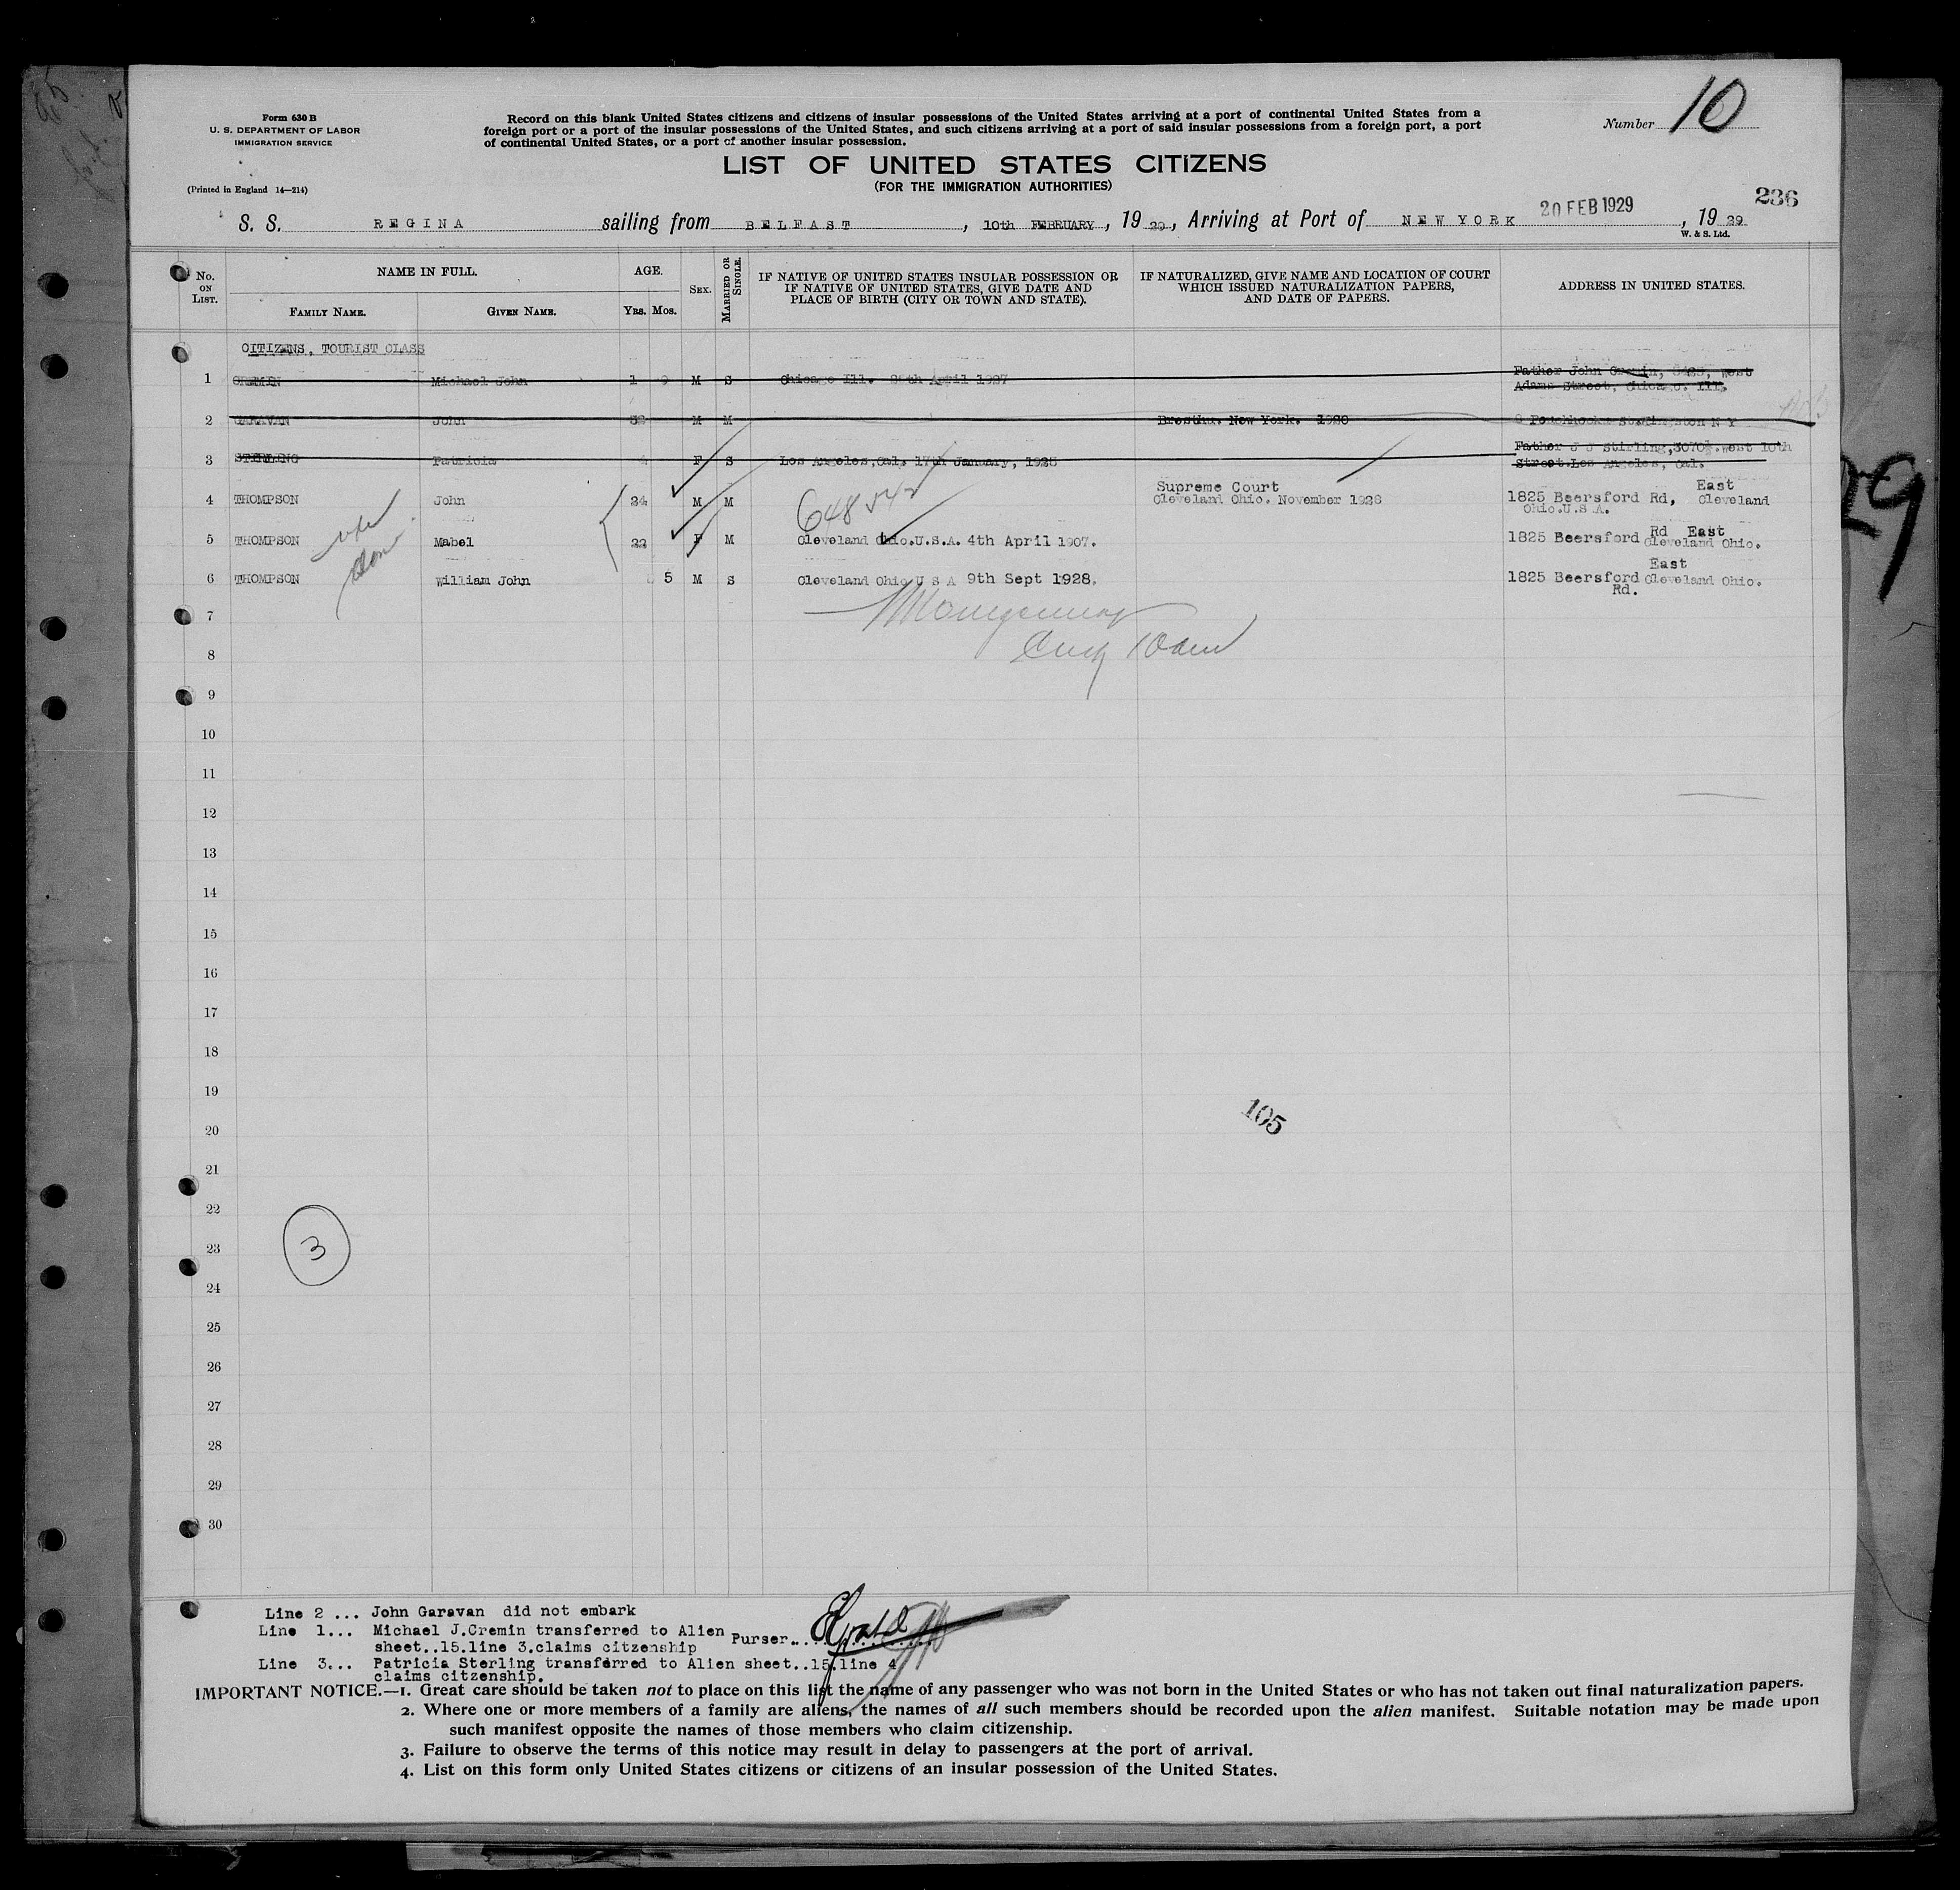 Form 630 B
U. S. DEPARTMENT OF LABOR
IMMIGRATION SERVICE
(Printed in England 14—214)
Record on this blank United States citizens and citizens of insular possessions of the United States arriving at a port of continental United States from a
foreign port or a port of the insular possessions of the United States, and such citizens arriving at a port of said insular possessions from a foreign port, a port
of continental United States, or a port of another insular possession.
Number 10
LIST OF UNITED STATES CITIZENS
(FOR THE IMMIGRATION AUTHORITIES)
236
S. S. REGINA sailing from BELFAST, 10th FEBRUARY, 19 29, Arriving at Port of NEW YORK 20 FEB 1929, 19 29
W. & S. Ltd.
No. ON LIST.
NAME IN FULL.
FAMILY NAME.
GIVEN NAME.
AGE.
YRS. MOS.
SEX.
MARRIED OR SINGLE.
IF NATIVE OF UNITED STATES INSULAR POSSESSION OR
IF NATIVE OF UNITED STATES, GIVE DATE AND
PLACE OF BIRTH (CITY OR TOWN AND STATE).
IF NATURALIZED, GIVE NAME AND LOCATION OF COURT
WHICH ISSUED NATURALIZATION PAPERS,
AND DATE OF PAPERS.
ADDRESS IN UNITED STATES.
CITIZENS, TOURIST CLASS
1 CREMIN Michael John 1 9 M S Chicago Ill. April 1927 Father John Cremin, West
Adams Street, Chicago. Ill.
2 GARAVAN John M M New York. N Y
3 STERLING Patricia 4 F S Los Angeles, Cal. 17th January, 1925 Father J J Stirling, West 10th
Street Los Angeles, Cal.
4 THOMPSON John 24 M M Supreme Court
Cleveland Ohio. November 1928 1825 Beersford Rd, East Cleveland
Ohio.U.S A.
648542
5 THOMPSON Mabel 22 F M Cleveland Ohio.U.S.A. 4th April 1907. 1825 Beersford Rd East
Cleveland Ohio.
6 THOMPSON William John 5 M S Cleveland Ohio U S A 9th Sept 1928. 1825 Beersford Rd. East
Cleveland Ohio.
7
Montgomery
8
9
10
11
12
13
14
15
16
17
18
19
105
20
21
22
23
3
24
25
26
27
28
29
30
Line 2 ... John Garavan did not embark
Line 1... Michael J.Cremin transferred to Alien
sheet..15.line 3.claims citzenship
Purser
Line 3... Patricia Sterling transferred to Alien sheet..15.line 4
claims citzenship.
IMPORTANT NOTICE.—1. Great care should be taken not to place on this list the name of any passenger who was not born in the United States or who has not taken out final naturalization papers.
2. Where one or more members of a family are aliens, the names of all such members should be recorded upon the alien manifest. Suitable notation may be made upon
such manifest opposite the names of those members who claim citizenship.
3. Failure to observe the terms of this notice may result in delay to passengers at the port of arrival.
4. List on this form only United States citizens or citizens of an insular possession of the United States.